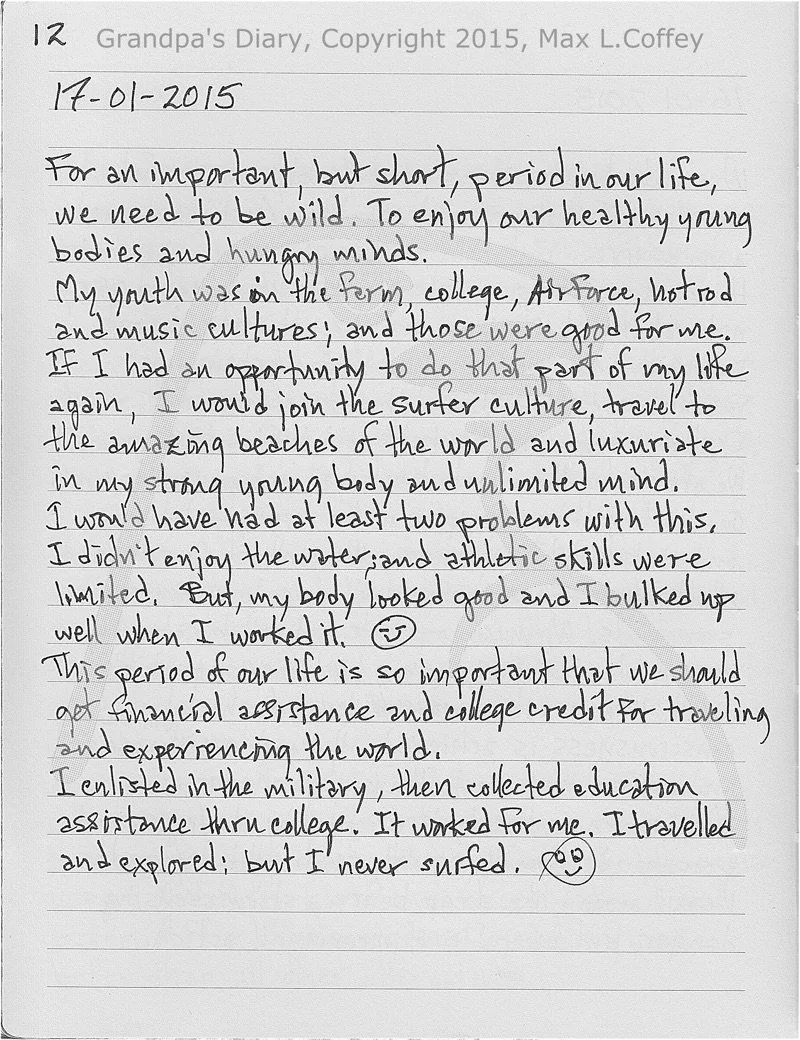 12 Grandpa's Diary, Copyright 2015, Max L.Coffey
17-01-2015
For an important, but short, period in our life,
we need to be wild. To enjoy our healthy young
bodies and hungry minds.
My youth was in the farm, college, Air Force, hot rod
and music cultures; and those were good for me.
If I had an opportunity to do that part of my life
again, I would join the surfer culture, travel to
the amazing beaches of the world and luxuriate
in my strong young body and unlimited mind.
I would have had at least two problems with this.
I didn't enjoy the water; and athletic skills were
limited. But, my body looked good and I bulked up
well when I worked it.
This period of our life is so important that we should
get financial assistance and college credit for traveling
and experiencing the world.
I enlisted in the military, then collected education
assistance thru college. It worked for me. I travelled
and explored; but I never surfed.